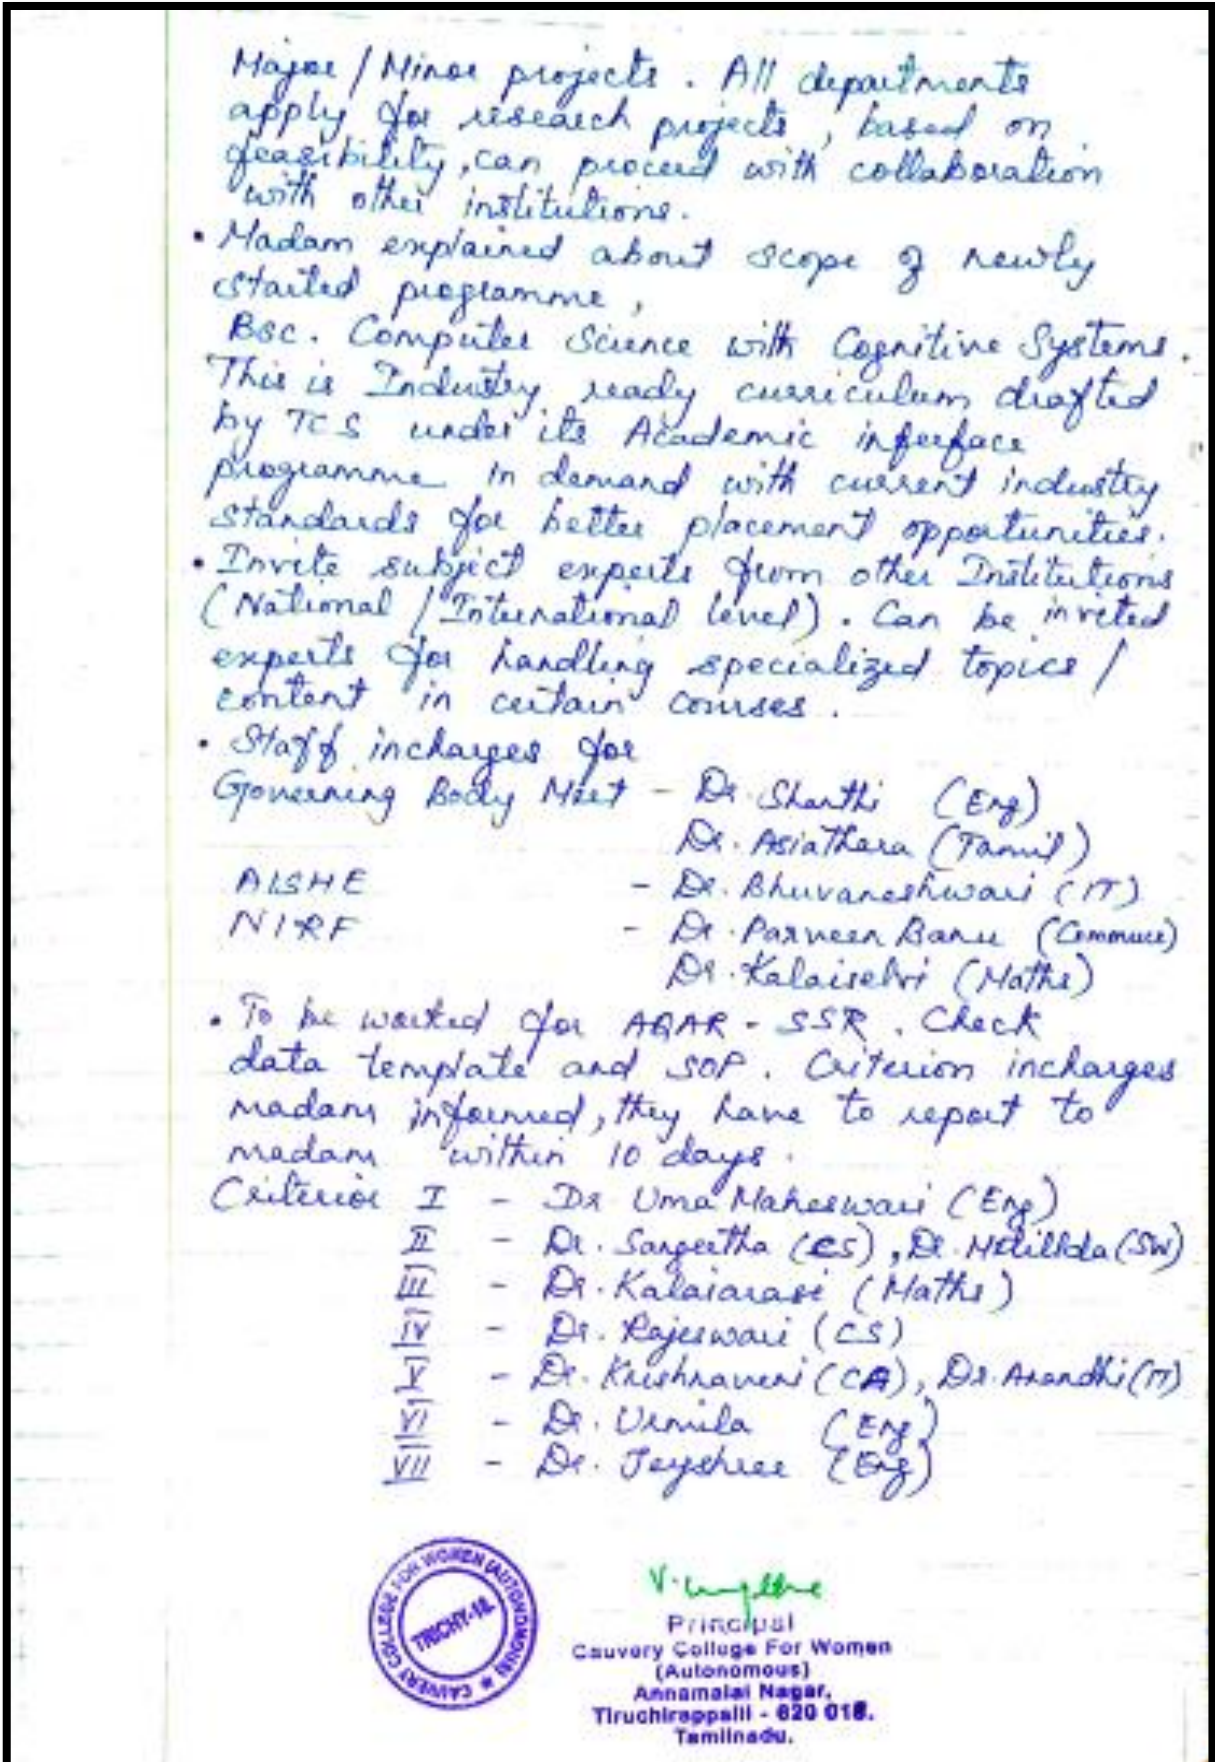 Major / Minor projects. All departments
apply for research projects, based on
feasibility, can proceed with collaboration
with other institutions.
• Madam explained about scope of newly
started programme,
Bsc. Computer Science with Cognitive Systems.
This is Industry ready curriculum drafted
by TCS under its Academic interface
programme in demand with current industry
standards for better placement opportunities.
• Invite subject experts from other Institutions
(National / International level). Can be invited
experts for handling specialized topics /
content in certain courses.
• Staff incharges for
Governing Body Meet - Dr. Shanthi (Eng)
Dr. Asiathara (Tamil)
AISHE - Dr. Bhuvaneshwari (IT)
NIRF - Dr. Parveen Banu (Commerce)
Dr. Kalaiselvi (Maths)
• To be worked for AQAR - SSR. Check
data template and SOP. Criterion incharges
madam informed, they have to report to
madam within 10 days.
Criterior I - Dr Uma Maheswari (Eng)
II - Dr. Sangeetha (CS), Dr. (SW)
III - Dr. Kalaiarasi (Maths)
IV - Dr. Rajeswari (CS)
V - Dr. Krishnaveni (CA), Dr. Anandhi (IT)
VI - Dr. Urmila (Eng)
VII - Dr. Jeyshree (Eng)
CAUVERY COLLEGE FOR WOMEN (AUTONOMOUS)
TRICHY-18.
Principal
Cauvery College For Women
(Autonomous)
Annamalai Nagar,
Tiruchirappalli - 620 018.
Tamilnadu.